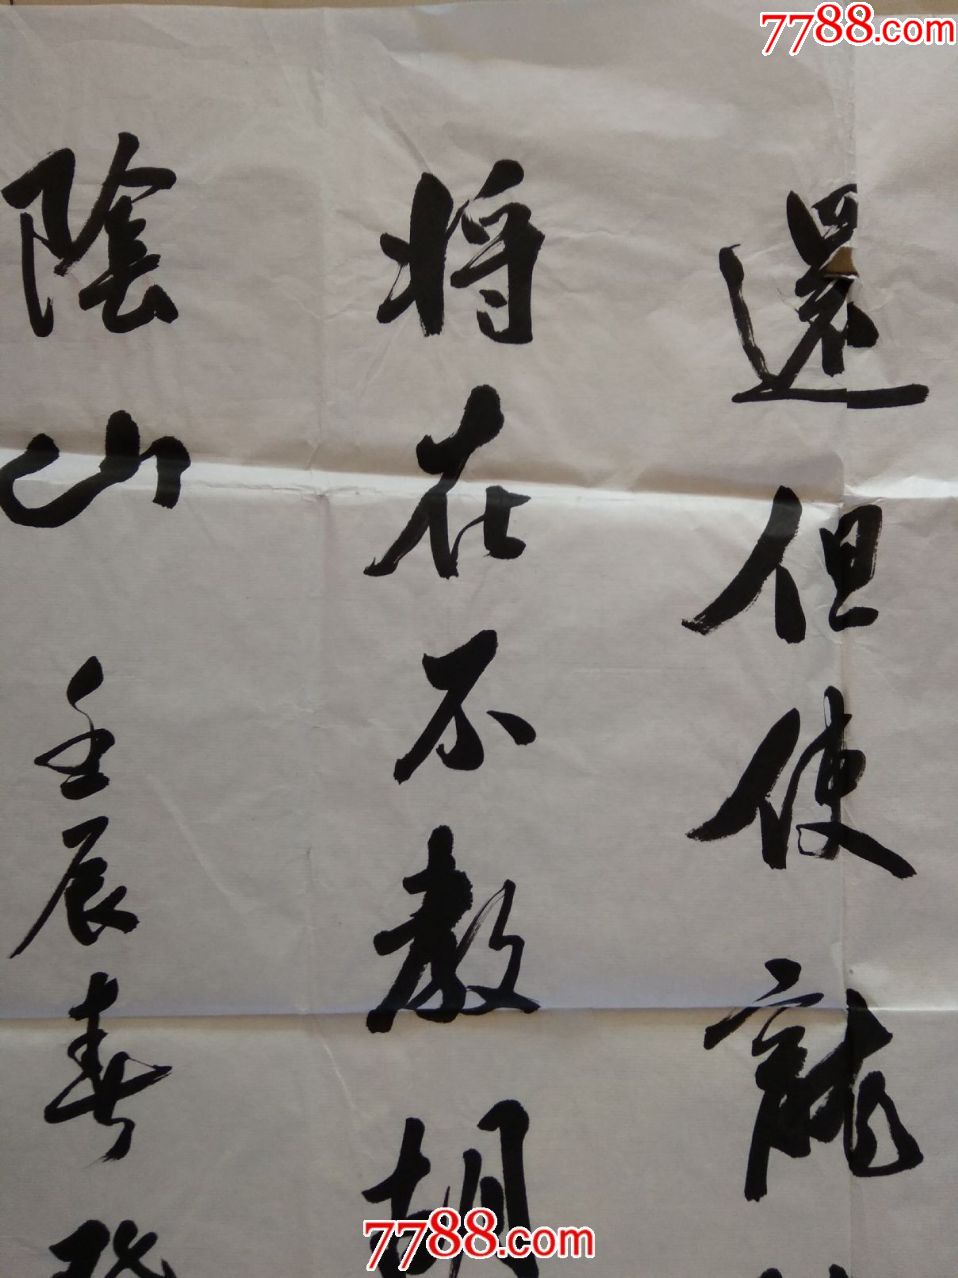 7788.com
還但使龍
将在不教胡
陰山 壬辰春
7788.com